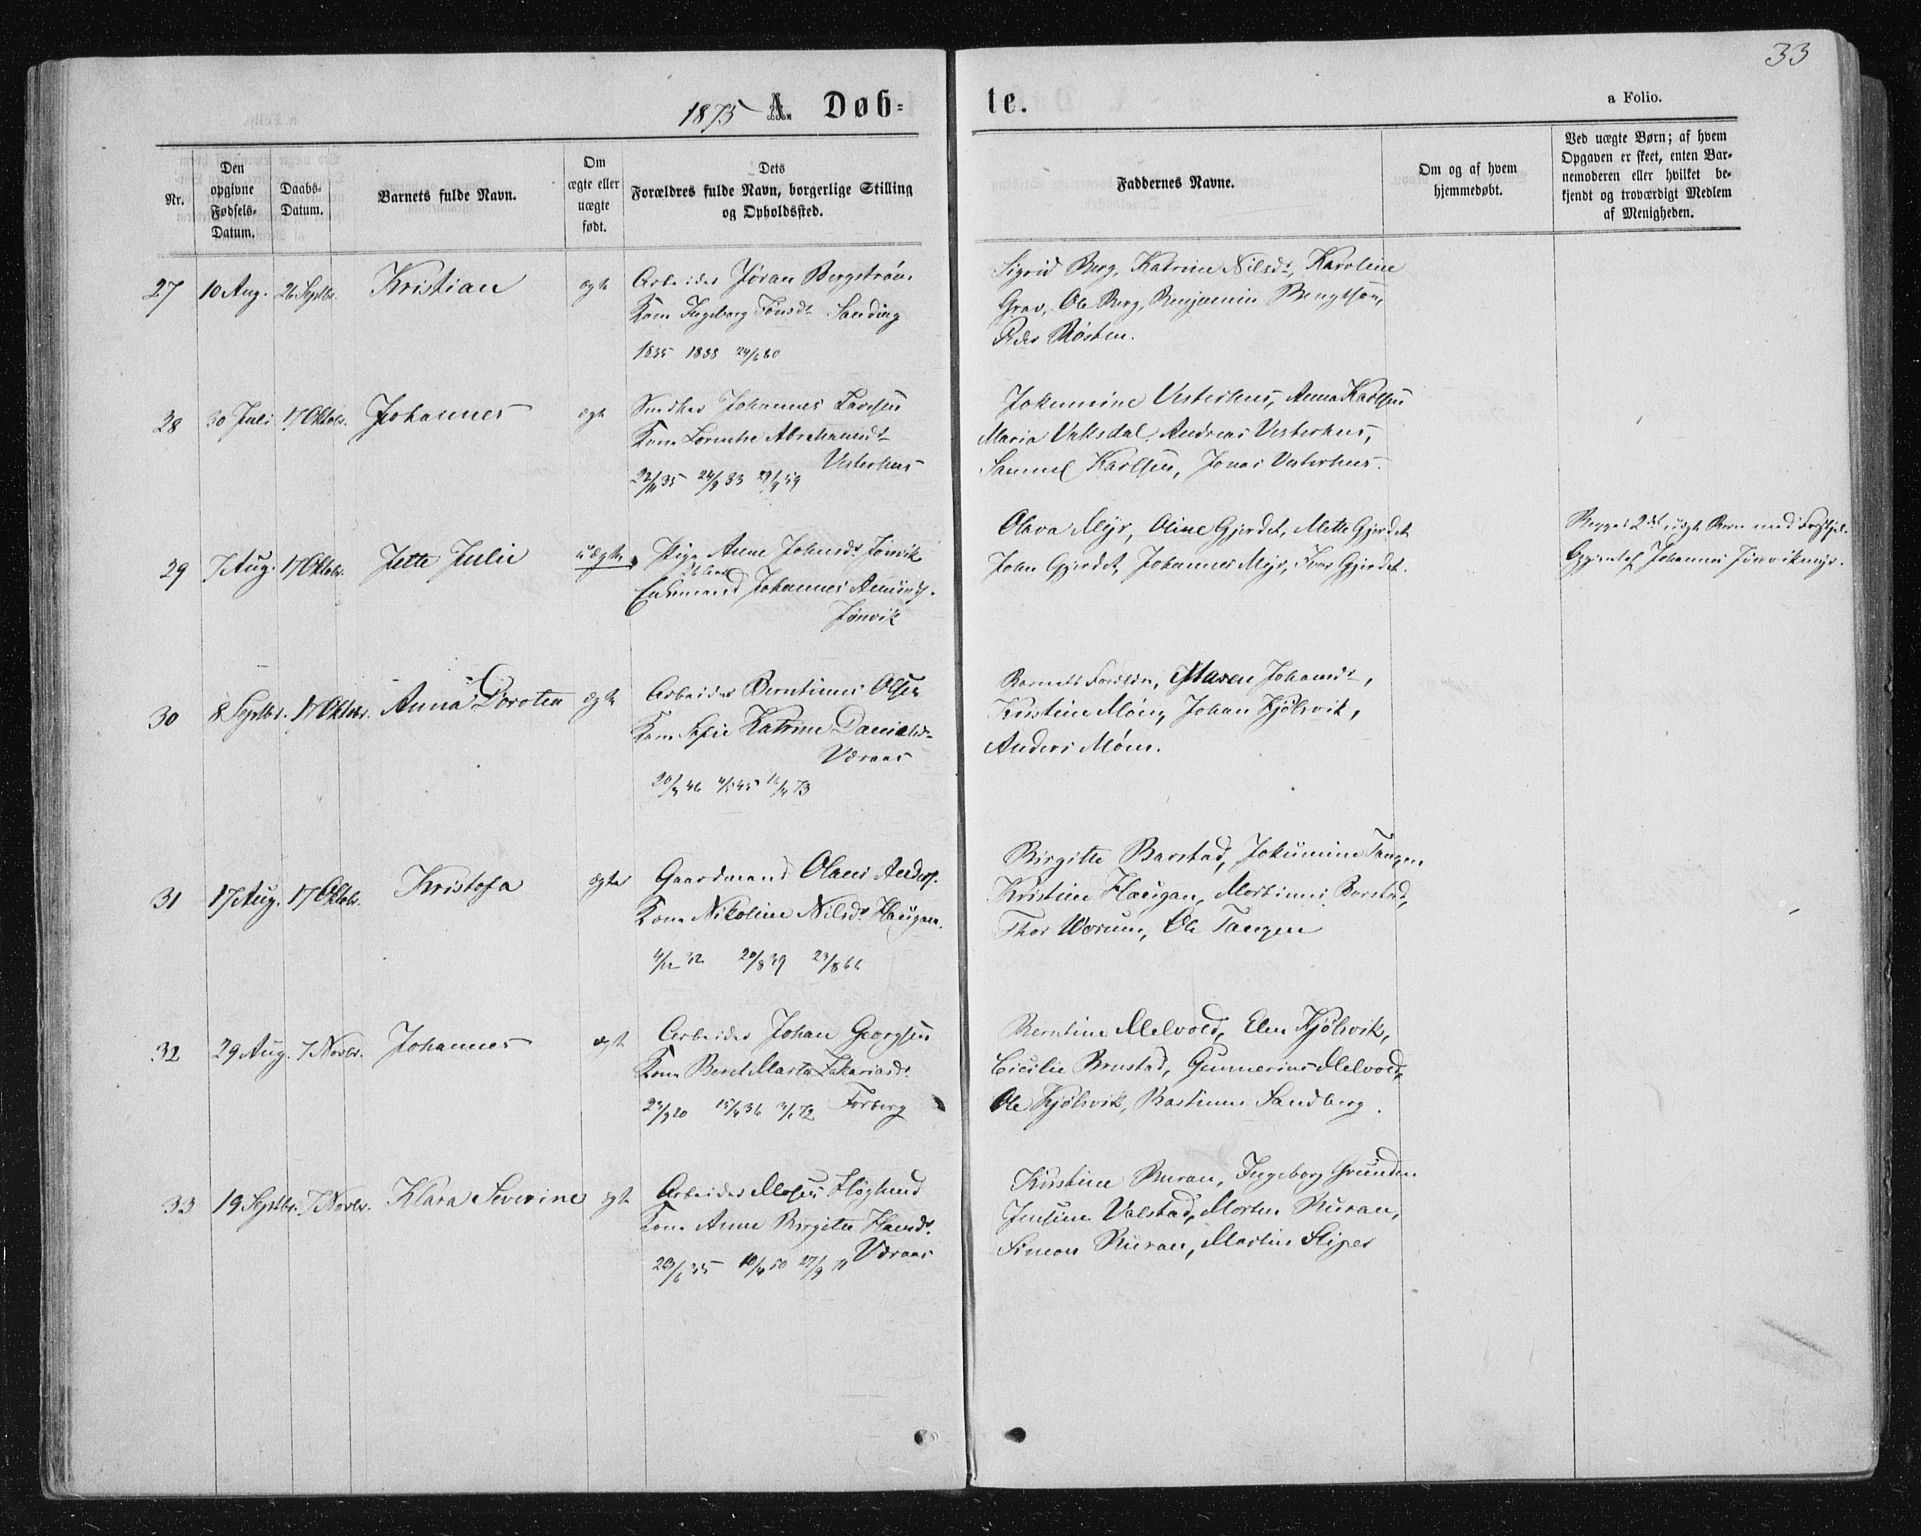 33
1875 A. Døb-
te.
a Folio.
Nr.
Den
opgivne
Fødsels-
Datum.
Daabs-
Datum.
Barnets fulde Navn.
Om
ægte eller
uægte
født.
Dets
Forældres fulde Navn, borgerlige Stilling
og Opholdssted.
Faddernes Navne.
Om og af hvem
hjemmedøbt.
Ved uægte Børn; af hvem
Opgaven er skeet, enten Bar-
nemoderen eller hvilket be-
kjendt og troværdigt Medlem
af Menigheden.
27 10 Aug. 26 Septbr. Kristian ægte Arbeider Jöran Bergström
Kone Ingeborg Sanding
1835 1838
Sigrid Berg, Katrine Nilsdt, Karoline
Grav, Ole Berg, Benjamin Bengtson,
Peder Røsten.
28 30 Juli 17 Oktobr. Johannes ægte Johannes
Kone Abrahamsdt
Vesterhus
22/11 35 24/9 33 59
Jokumine Vesterhus, Anna Karlsen
Maria Valisdal, Andreas Vesterhus,
Samuel Karlsen, Jonas Vesterhus.
29 7 Aug. 17 Oktobr. Jette Julie uægte Pige Anne Johnsdt
Enkemand Johannes
Olava Myr, Oline Gjerdet, Mette Gjerdet
John Gjerdet, Johannes Myr, Iver Gjerdet.
Begges 2det uægte Barn med
Johannes
30 8 Septbr. 17 Oktobr. Anna Dorotea ægte Arbeider Berntinus Olsen
Kone Sofie Katrine Danielsdt
Væraas
46 45 73
Barnets Forældre, Maren Johansdt,
Kristine Møen, Johan Kjølsvik,
Anders Møen.
31 17 Aug. 17 Oktobr. Kristofa ægte Gaardmand Olaus Anders.
Kone Nikoline Nilsdt Haugan.
4/12 32 20/8 39 23/8 66
Birgitte Barstad, Jokumine Tangen
Kristine Haugan, Mortinus Barstad,
Thor Worum, Ole Tangen
32 29 Aug. 7 Novbr. Johannes ægte Arbeider Johan Georgsen
Kone Beret Marta Zakariasdt
Forberg
Berntine Melvold, Elen Kjølsvik,
Cicilie Brustad, Gunnerius Melvold,
Ole Kjølsvik, Bastinus Sandberg.
33 19 Septbr. 7 Novbr. Klara Severine ægte Arbeider Höglund
Kone Anne Birgitte Hansdt
Væraas
23/6 35 10/4 50
Kirstine Buran, Ingeborg Grunden
Jensine Valstad, Morten Buran,
Simon Buran, Martin